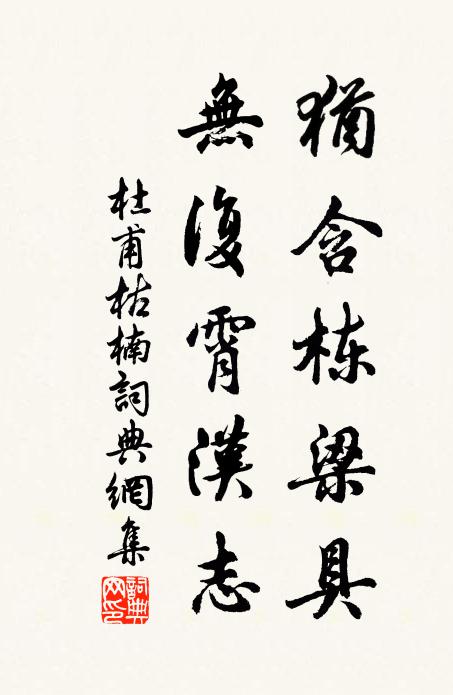 猶含栋梁具
無復霄漢志
杜甫枯楠詞典網集
詞典网印